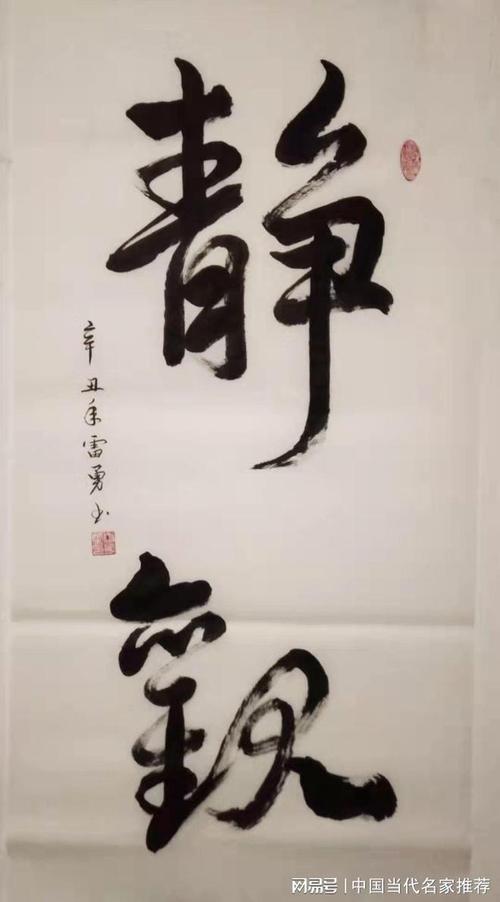 静觀
辛丑年雷勇书
网易号 | 中国当代名家推荐